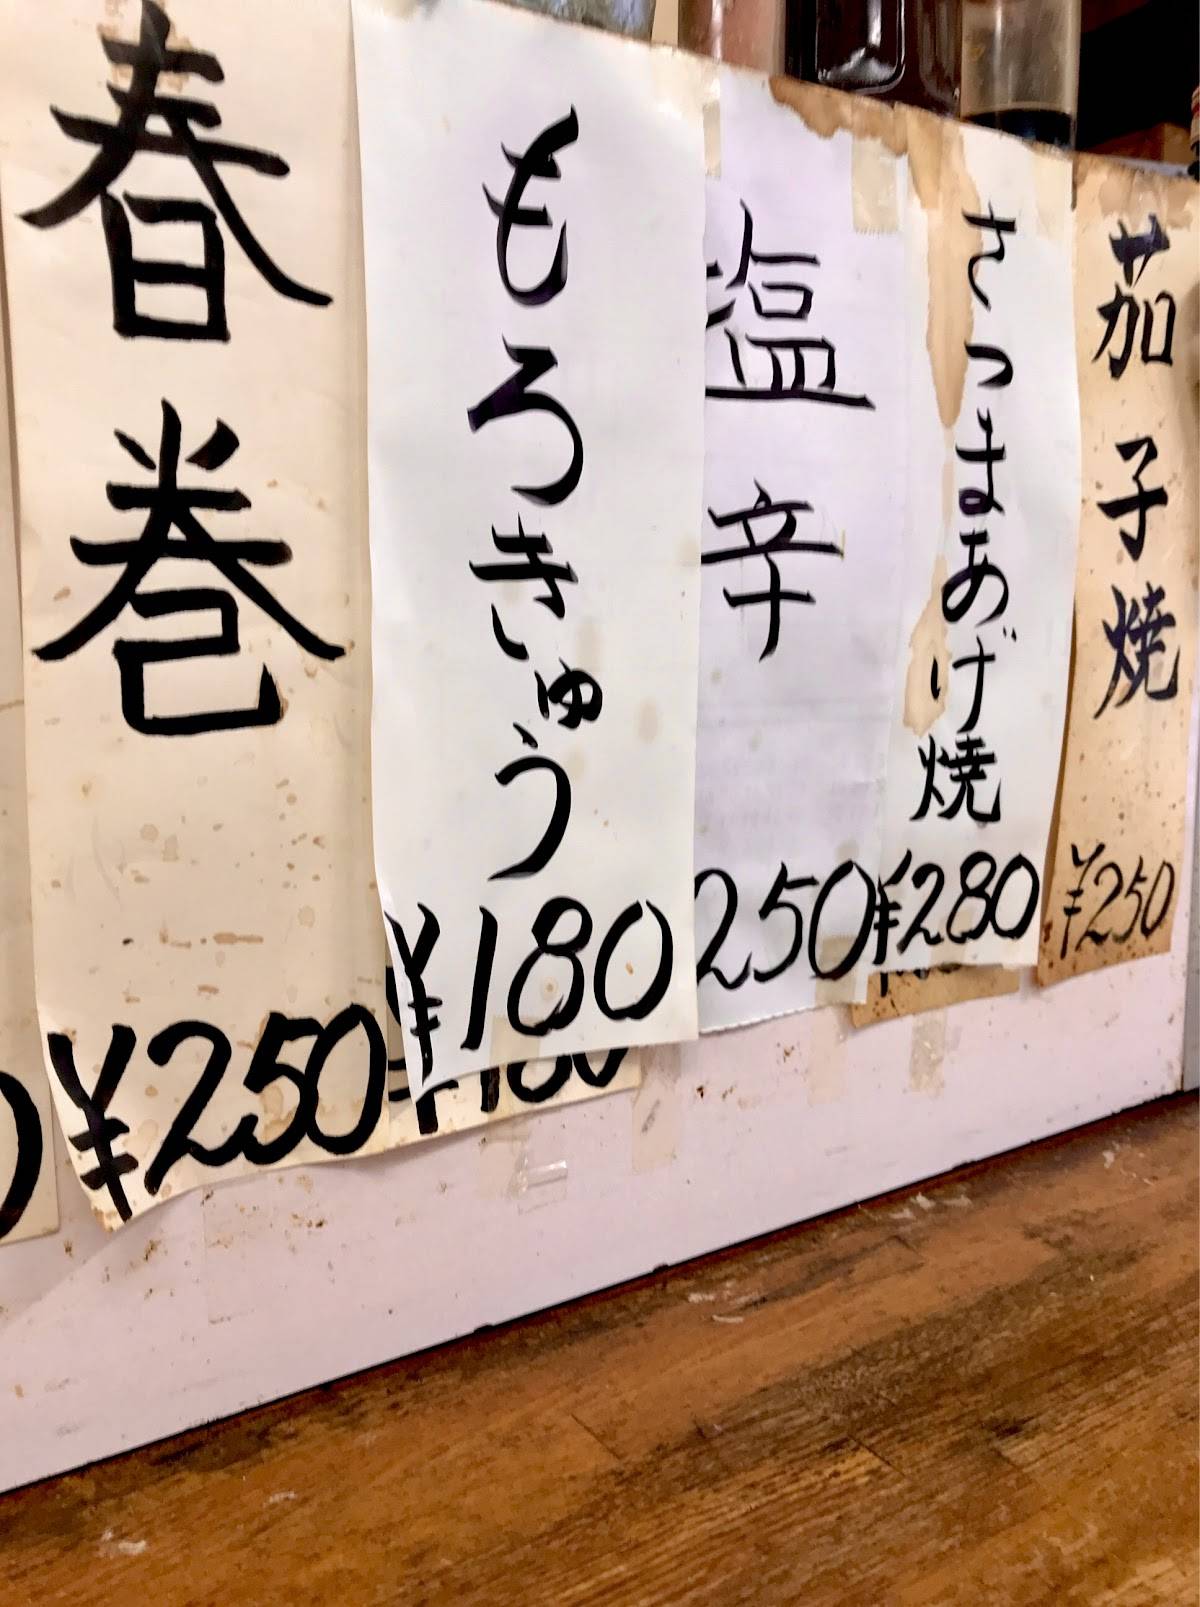 茄子焼
¥250
さつまあげ焼
¥280
塩辛
250
もろきゅう
¥180
春巻
¥250